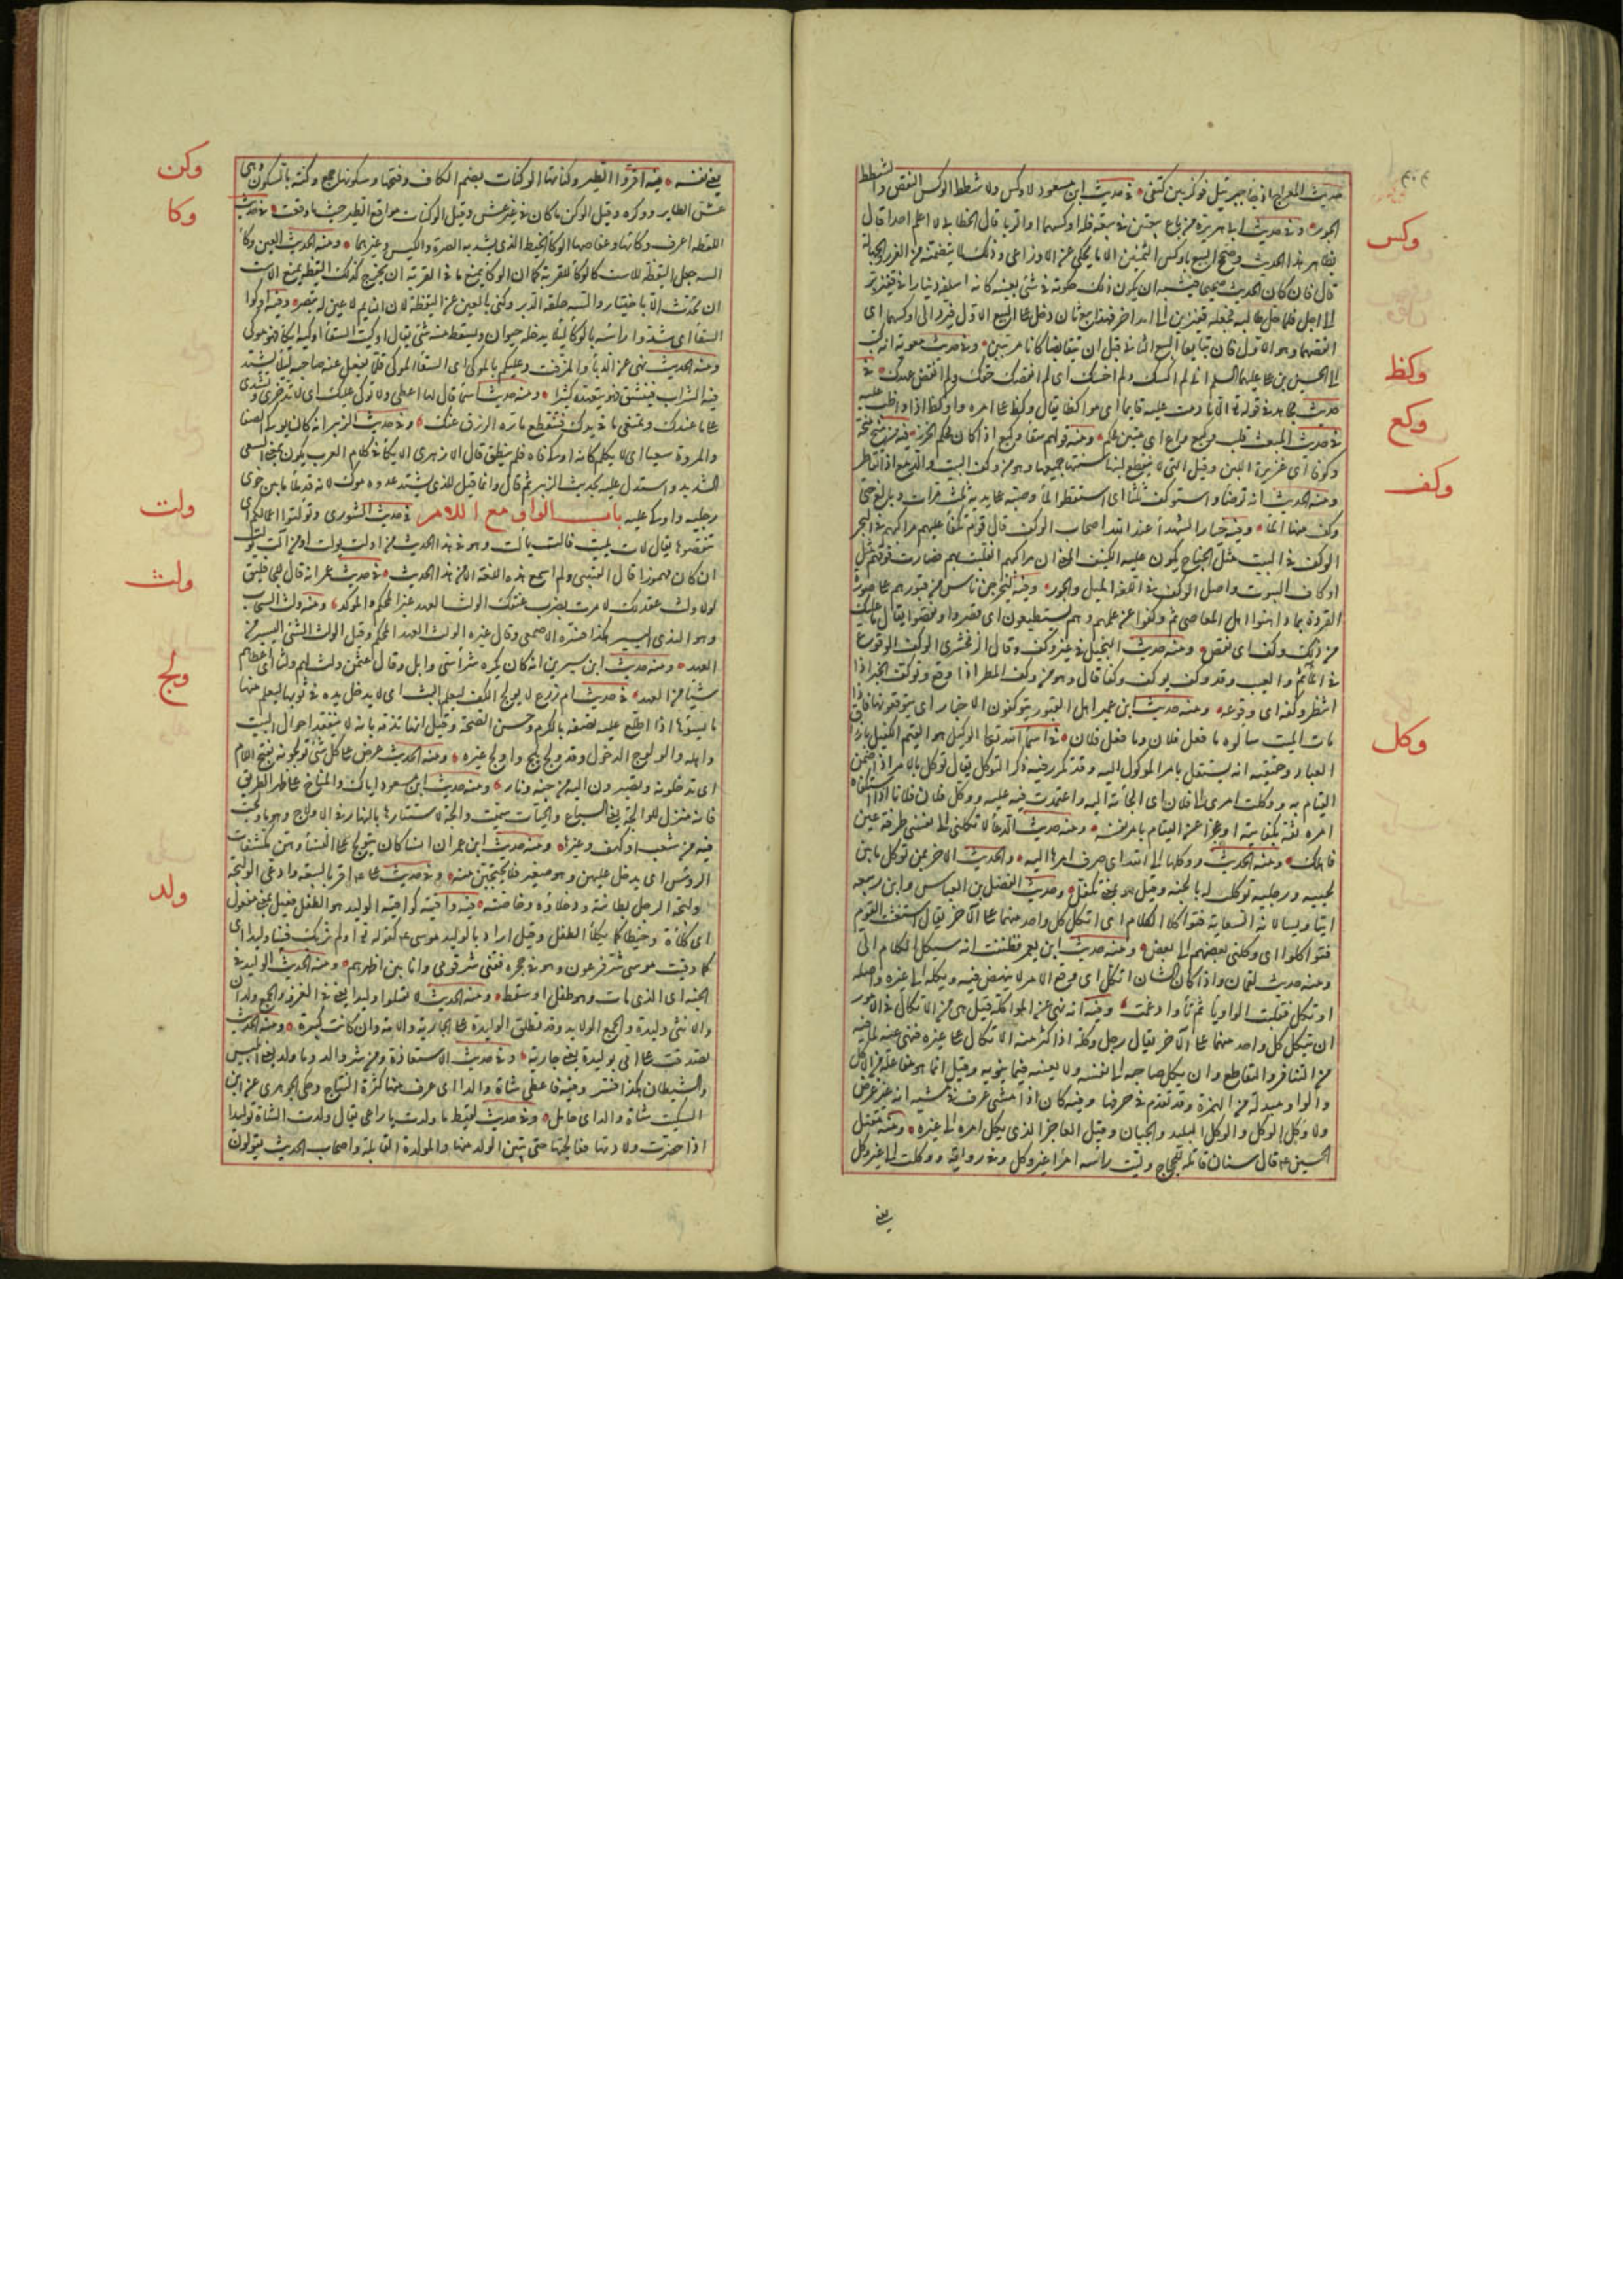 حديث المعراج اذ جا جبرئيل فوكز بين كتفي في حديث ابن مسعود لا وكس ولا شطط الوكس النقص والشطط
الجور وفي حديث ابي هريرة من باع بيعتين في بيعة فله اوكسهما او الربا قال الخطابي لا اعلم احدا قال
بظاهر هذا الحديث وصحح البيع باوكس الثمنين الا ما يحكى عن الاوزاعي وذلك لما يتضمنه من الغرر والجهالة
قال فان كان الحديث صحيحا فيشبه ان يكون ذلك حكومة في شئ بعينه كانه اسلفه دينارا في قفيز بر
الى اجل فلما حل طالبه فجعله قفيزين الى امد اخر فهذا بيع ثان دخل على البيع الاول فيرد الى اوكسهما اي
انقصهما وهو الاول فان تبايعا البيع الثاني قبل ان يتقابضا كانا مربيين وفي حديث معوية انه كتب
الى الحسين بن علي عليهما السلم اني لم اكسك ولم اخسك اي لم انقصك حقك ولم انقض عهدك في
حديث مجاهد في قوله تع الا ما دمت عليه قايما اي مواكظا يقال وكظ على امره وواكظ اذا واظب عليه
في حديث المبعث قلب وكيع واع اي متين محكم ومنه قولهم سقاء وكيع اذا كان محكم الخرز فيه من منح منحة
وكوفا اي غزيرة اللبن وقيل التي لا ينقطع لبنها سنتها جميعها وهو من وكف البيت والدمع اذا تقاطر
ومنه الحديث انه توضا واستوكف ثلثا اي استقطر الماء وصبه على يديه ثلث مرات وبالغ حتى
وكف منها الماء وفيه خيار الشهداء عند الله اصحاب الوكف قال قوم تكفأ عليهم مراكبهم في البحر
الوكف في البيت مثل الجناح يكون عليه الكنيف المعنى ان مراكبهم انقلبت بهم فصارت فوقهم مثل
اوكاف البيوت واصل الوكف في اللغة الميل والجور وفيه ليخرجن ناس من قبورهم على صورة
القردة بما داهنوا اهل المعاصي ثم وكفوا عن علمهم وهم يستطيعون اي قصروا ونقصوا يقال ما عليك
من ذلك وكف اي نقص ومنه حديث البخيل في غير وكف وقال الزمخشري الوكف الوقوع
في المأثم والعيب وقد وكف يوكف وكفا قال وهو من وكف المطر اذا وقع وتوكف الخبر اذا
انتظر وكفه اي وقوعه ومنه حديث ابن عمير اهل القبور يتوكفون الاخبار اي يتوقعونها فاذا
مات الميت سالوه ما فعل فلان وما فعل فلان في اسماء الله تعا الوكيل هو القيم الكفيل بارزاق
العباد وحقيقته انه يستقل بامر الموكول اليه وقد تكرر فيه ذكر التوكل يقال توكل بالامر اذا ضمن
القيام به ووكلت امري الى فلان اي الجأته اليه واعتمدت فيه عليه ووكل فلان فلانا اذا استكفاه
امره ثقة بكفايته او عجزا عن القيام بامر نفسه ومنه حديث الدعاء لا تكلني الى نفسي طرفة عين
فاهلك ومنه الحديث ووكلها الى الله اي صرف امرها اليه والحديث الاخر من توكل ما بين
لحييه ورجليه توكلت له بالجنة وقيل هو بمعنى تكفل وحديث الفضل بن العباس وابن ربيعه
اتياه يسالانه السعاية فتواكلا الكلام اي اتكل كل واحد منهما على الآخر يقال استعنت القوم
فتواكلوا اي وكلني بعضهم الى بعض ومنه حديث ابن يعمر فظننت انه سيكل الكلام الي
ومنه حديث لقمان واذا كان الشان اتكل اي وقع الامر لا ينهض فيه ويكله الى غيره واصله
اوتكل فقلبت الواو ياء ثم تاء وادغمت وفيه انه نهى عن المواكلة قيل هي من الاتكال في الامور
ان يتكل كل واحد منهما على الآخر يقال رجل وكلة اذا كثر منه الاتكال على غيره فنهى عنه لما فيه
من التنافر والتقاطع وان يكل صاحبه الى نفسه ولا يعينه فيما ينوبه وقيل انما هو مفاعلة من الاكل
والواو مبدلة من الهمزة وقد تقدم في حرفها وفيه كان اذا مشى عرف في مشيه انه غير غرض
ولا وكل الوكل والوكل البليد والجبان وقيل العاجز الذي يكل امره الى غيره ومنه مقتل
الحسين ع قال سنان قاتله للحجاج وليت رأسه امرأ غير وكل وفي رواية ووكلت الى غير وكل
يعني
وكس
وكظ
وكع
وكف
وكل
يعني نفسه فيه اقروا الطير وكناتها الوكنات بضم الكاف وفتحها وسكونها جمع وكنة بالسكون وهي
عش الطاير ووكره وقيل الوكن ما كان في غير عش وقيل الوكنات مواقع الطير حيثما وقعت في حديث
اللقطه اعرف وكاءها وعفاصها الوكاء الخيط الذي يشد به الصرة والكيس وغيرهما ومنه الحديث العين وكاء
السه جعل اليقظة للاست كالوكاء للقربة كما ان الوكاء يمنع ما في القربة ان يخرج كذلك اليقظة تمنع الاست
ان تحدث الا باختيار والسه حلقة الدبر وكنى بالعين عن اليقظة لان النايم لا عين له تبصر وفيه اوكوا
السقاء اي شدوا راسه بالوكاء ليلا يدخله حيوان او يسقط منه شئ يقال اوكيت السقاء اوكيه ايكاء فهو موكى
ومنه الحديث نهى عن الدباء والمزفت وعليكم بالموكى اي السقاء الموكى قلما يغفل عنه صاحبه ليلا يشتد
فيه الشراب فينشق فهو يتعهده كثيرا ومنه حديث اسماء قال لها اعطي ولا توكي فيوكى عليك اي لا تدخري وتشدي
على ما عندك وتمنعي ما في يدك فتنقطع مادة الرزق عنك وفي حديث الزبير انه كان يوكي بين الصفا
والمروة سعيا اي لا يتكلم كانه اوكى فاه فلم ينطق قال الازهري الايكاء في كلام العرب يكون بمعنى السعي
الشديد واستدل عليه بحديث الزبير ثم قال وانما قيل للذي يشتد عدوه موك لانه قد ملأ ما بين خوى
رجليه واوكى عليه باب الواو مع اللام في حديث الشورى وتولتوا اعمالكم اي
تنقصوها يقال لات يليت والت يالت وهو في هذا الحديث من اولت يولت او من آلت يولت
ان كان مهموزا قال القتيبي ولم اسمع هذه اللغة الا من هذا الحديث في حديث عمر انه قال للجاثليق
لولا ولث عقد لك لامرت بضرب عنقك الولث العهد غير المحكم والمؤكد ومنه ولث السحاب
وهو الندى اليسير هكذا فسره الاصمعي وقال غيره الولث العهد المحكم وقيل الولث الشئ اليسير من
العهد ومنه حديث ابن سيرين انه كان يكره شراء سبي زابل وقال ان عثمن ولث لهم ولثا اي اعطاهم
شيئا من العهد في حديث ام زرع لا يولج الكف ليعلم البث اي لا يدخل يده في ثوبها ليعلم منها
ما يسوءها اذا اطلع عليه تصفه بالكرم وحسن الصحبة وقيل انها تذمه بانه لا يتفقد احوال البيت
واهله والولوج الدخول وقد ولج يلج واولج غيره ومنه الحديث عرض علي كل شئ تولجونه بفتح اللام
اي تدخلونه وتصيرون اليه من جنة ونار ومنه حديث ابن مسعود اياك والمناخ على ظهر الطريق
فانه منزل للوالجة يعني السباع والحيات سميت والجة لاستتارها بالنهار في الاولاج وهو ما ولجت
فيه من شعب او كهف وغيرها ومنه حديث ابن عمر ان انسا كان يتولج على النساء وهن مكشفات
الروس اي يدخل عليهن وهو صغير فلا يحتجبن منه وفي حديث علي ع اقر بالبيعة وادعى الوليجة
وليجة الرجل بطانته ودخلاؤه وخاصته فيه واقية كواقية الوليد هو الطفل فعيل بمعنى مفعول
اي كلاءة وحفظا كما يكلأ الطفل وقيل اراد بالوليد موسى ع كقوله تع الم نربك فينا وليدا اي
كما وقيت موسى شر فرعون وهو في حجره فقني شر قومي وانا بين اظهرهم ومنه الحديث الوليد في
الجنة اي الذي مات وهو طفل او سقط ومنه الحديث لا تقتلوا وليدا يعني في الغزو والجمع ولدان
والانثى وليدة والجمع الولايد وقد تطلق الوليدة على الجارية والامة وان كانت كبيرة ومنه الحديث
تصدقت على امي بوليدة يعني جارية وفي حديث الاستعاذة ومن شر والد وما ولد يعني ابليس
والشيطان هكذا فسر وفيه فاعطى شاة والدا اي عرف منها كثرة النتاج وحكى الجوهري عن ابن
السكيت شاة والد اي حامل وفي حديث لقيط ما ولدت يا راعي يقال ولدت الشاة توليدا
اذا حضرت ولادتها فعالجتها حتى يبين الولد منها والمولدة القابلة واصحاب الحديث يقولون
وكن
وكا
ولت
ولث
ولج
ولد